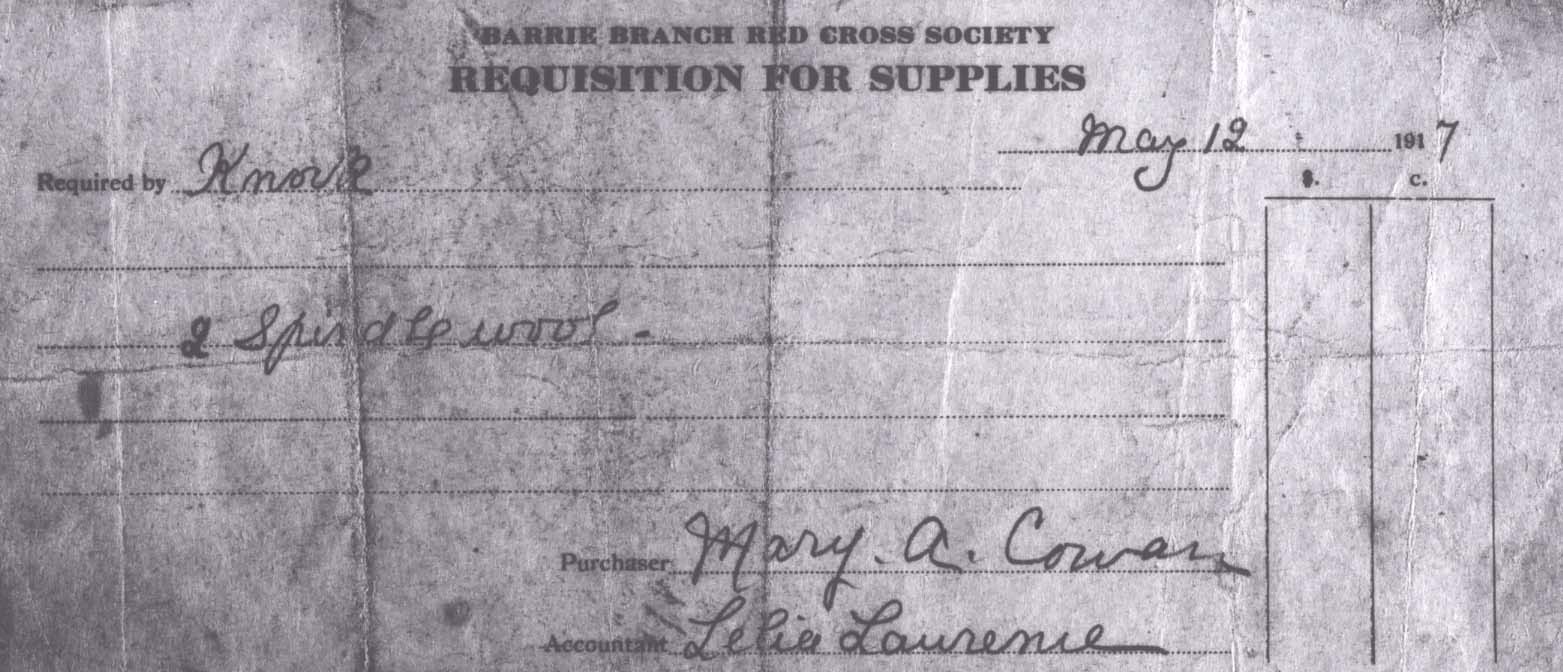 BARRIE BRANCH RED CROSS SOCIETY
REQUISITION FOR SUPPLIES
May 12 1917
Required by Knock
$. c.
2 Spindle wool -
Purchaser Mary. A. Cowan
Accountant Lelia Laurence